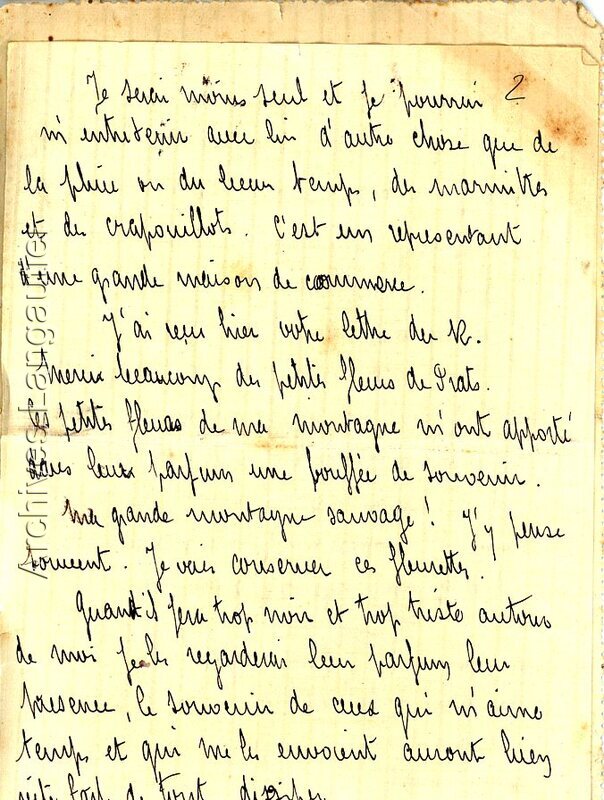 2
Je serai moins seul et je pourrai
m'entretenir avec lui d'autre chose que de
la pluie ou du beau temps, des marmites
et des crapouillots. C'est un représentant
d'une grande maison de commerce.
J'ai reçu hier votre lettre du 12.
Merci beaucoup des petites fleurs de Prats.
petites fleurs de ma montagne m'ont apporté
dans leur parfum une bouffée de souvenir.
Ma grande montagne sauvage! J'y pense
souvent. Je vais conserver ces fleurettes.
Quand il fera trop noir et trop triste autour
de moi je les regarderai leur parfum, leur
présence, le souvenir de ceux qui m'aime
temps et qui me les envoient auront bien
vite fait de tout dissiper
Archives Langautier